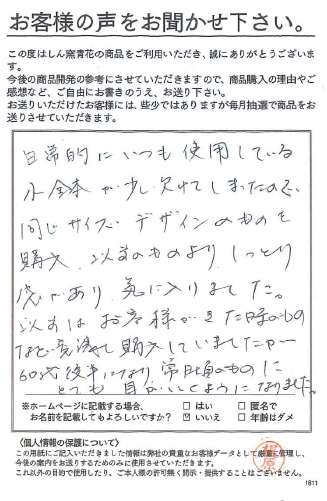 お客様の声をお聞かせ下さい。
この度はしん窯青花の商品をご利用いただき、誠にありがとうございま
す。
今後の商品開発の参考にさせていただきますので、商品購入の理由やご
感想など、ご自由にお書きのうえ、お送り下さい。
お送りいただけたお客様には、些少ではありますが毎月抽選で商品をお
送りさせていただきます。
日常的にいつも使用している
が少し欠けてしまったので、
同じサイズ、デザインのものを
購入、以前のものより、しっとり
感があり、気に入りました。
以前はお客様がきた時のもの
などを 購入していましたが
60代後半になり、常日頃のものに
とても 目がいくようになりました。
※ホームページに記載する場合、 □ はい □ 匿名で
お名前を記載してもよろしいですか? ☑ いいえ □ 年齢はダメ
〈個人情報の保護について〉
この用紙にご記入いただきました情報は弊社の貴重なお客様データとして厳重に管理し、
今後の案内をお送りするためのみに使用させていただきます。
これ以外の目的で使用したり、ご本人様の許可無く開示・提供することはございません。
1811